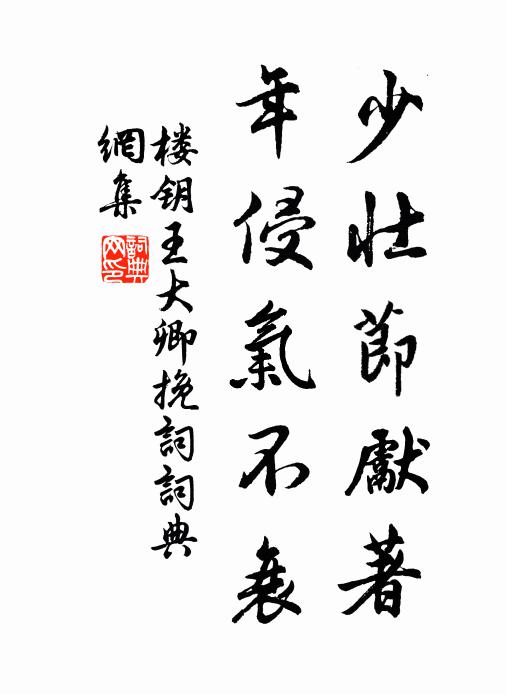 少壮節獻著
年侵氣不衰
楼钥王大卿挽詞詞典
網集
詞典网印